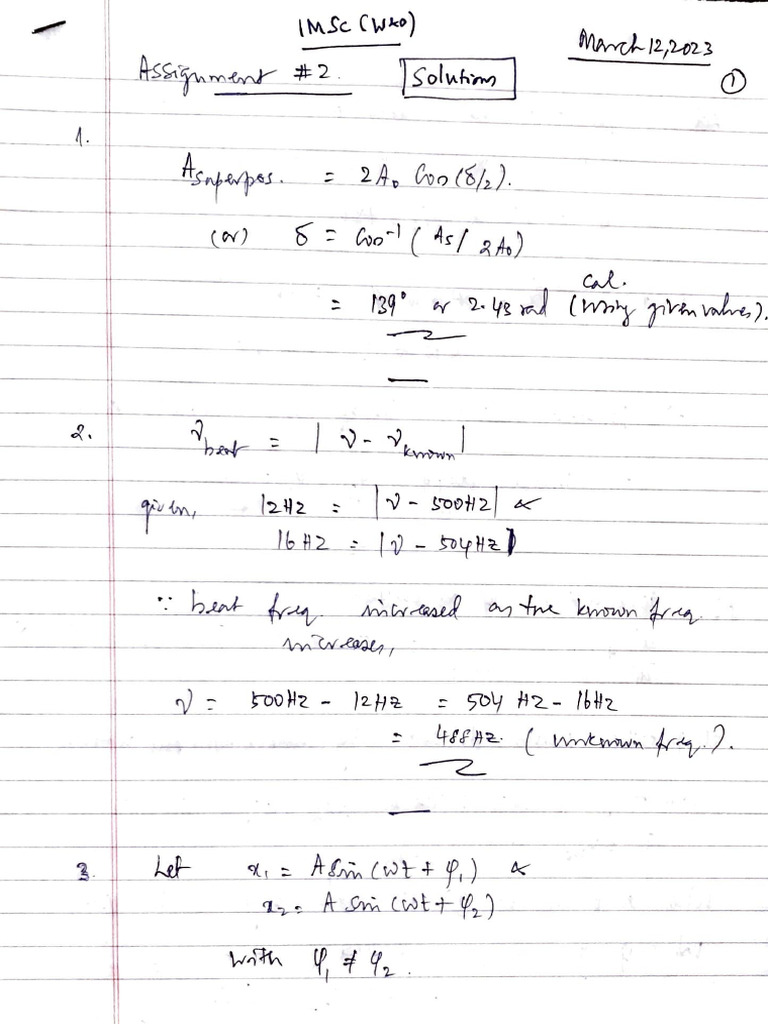 IMSc (W&O)
March 12, 2023
Assignment #2.
Solutions
①
1.
A superpos. = 2A₀ Cos(δ/2).
(or) δ = Cos⁻¹ (As/2A₀)
cal.
= 139° or 2.43 rad (using given values).
2.
ν beat = |ν - ν known|
given, 12Hz = |ν - 500HZ| &
16HZ = |ν - 504HZ|
∵ beat freq. increased as the known freq
increases,
ν = 500HZ - 12HZ = 504 HZ - 16HZ
= 488HZ. (unknown freq.).
3. Let x₁ = A Sin (ωt + φ₁) &
x₂ = A Sin (ωt + φ₂)
with φ₁ ≠ φ₂.